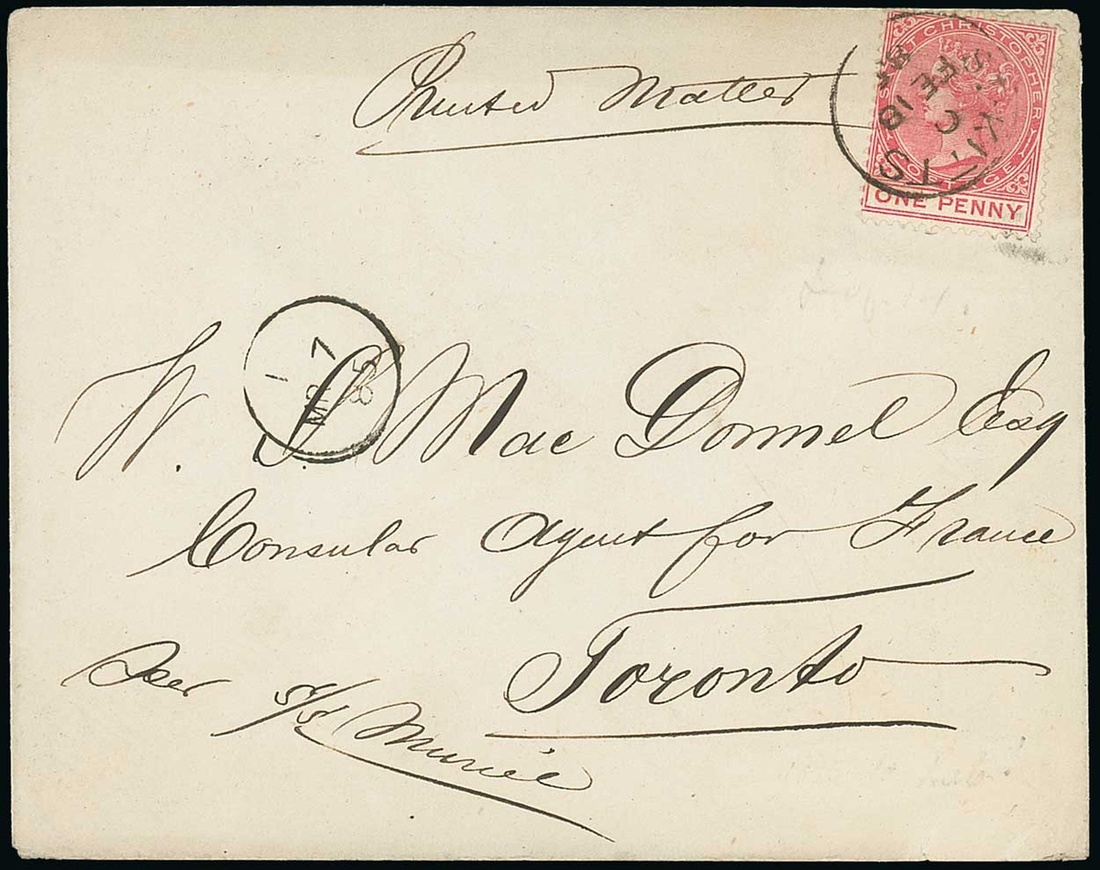 Printed Matter
SAINT CHRISTOPHER
POSTAGE
ONE PENNY
ST. KITTS
C
FE 18
85
1
MR 7
85
W. S. Mac Donnel Esq
Consular Agent for France
Toronto
Per S/S Muriel